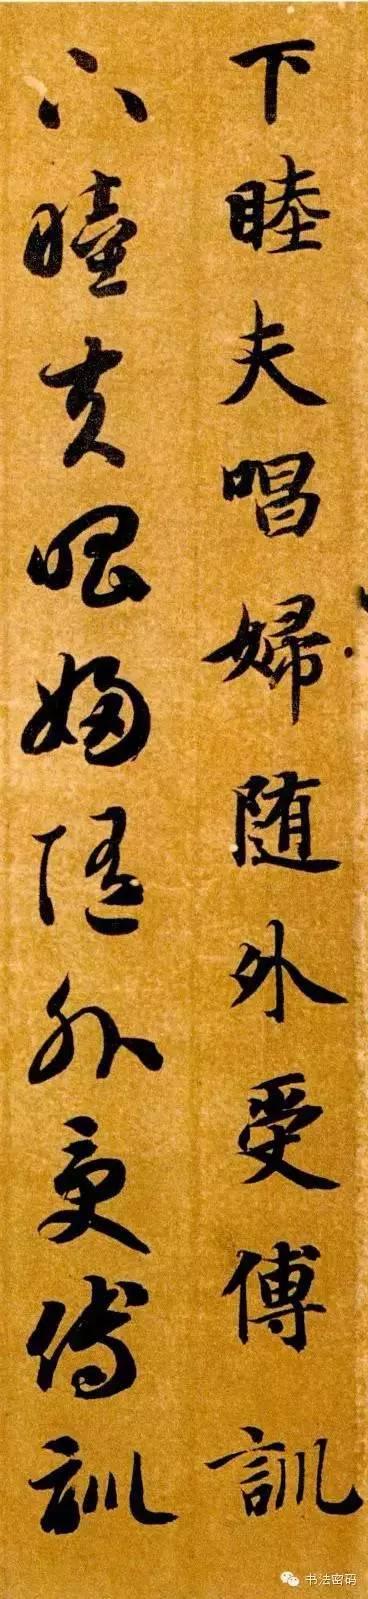 下睦夫唱婦随外受傅訓
下睦夫唱婦随外受傅訓
书法密码